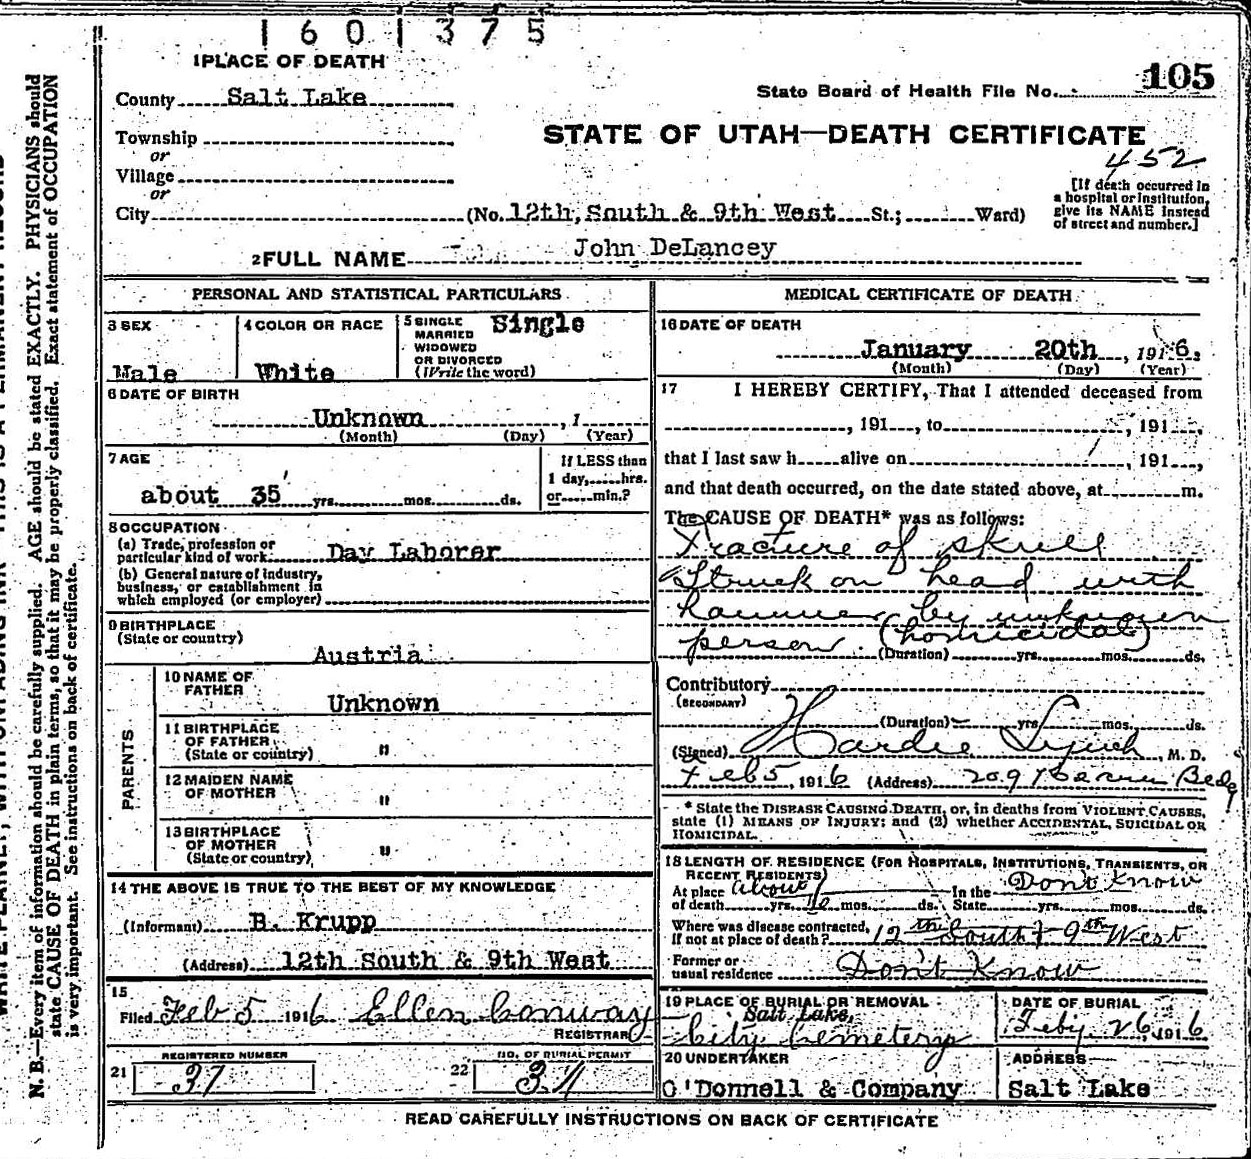 1601375
1 PLACE OF DEATH
105
County Salt Lake
State Board of Health File No.
Township
STATE OF UTAH—DEATH CERTIFICATE
or
452
Village
or
[If death occurred in
a hospital or institution,
give its NAME instead
of street and number.]
City (No. 12th, South & 9th West St.; Ward)
2 FULL NAME John DeLancey
PERSONAL AND STATISTICAL PARTICULARS
3 SEX
Male
4 COLOR OR RACE
White
5 SINGLE
MARRIED
WIDOWED
OR DIVORCED
(Write the word)
Single
6 DATE OF BIRTH
Unknown , 1
(Month) (Day) (Year)
7 AGE
about 35 yrs. mos. ds.
If LESS than
1 day, hrs.
or min.?
8 OCCUPATION
(a) Trade, profession or
particular kind of work Day Laborer
(b) General nature of industry,
business, or establishment in
which employed (or employer)
9 BIRTHPLACE
(State or country)
Austria
PARENTS
10 NAME OF
FATHER
Unknown
11 BIRTHPLACE
OF FATHER
(State or country) "
12 MAIDEN NAME
OF MOTHER "
13 BIRTHPLACE
OF MOTHER
(State or country) "
14 THE ABOVE IS TRUE TO THE BEST OF MY KNOWLEDGE
(Informant) B. Krupp
(Address) 12th South & 9th West
15
Filed Feb 5 1916 Ellen Conway
REGISTRAR
REGISTERED NUMBER
21 37
NO. OF BURIAL PERMIT
22
MEDICAL CERTIFICATE OF DEATH
16 DATE OF DEATH
January 20th , 1916.
(Month) (Day) (Year)
17 I HEREBY CERTIFY, That I attended deceased from
, 191 , to , 191 ,
that I last saw h alive on , 191 ,
and that death occurred, on the date stated above, at m.
The CAUSE OF DEATH* was as follows:
Fracture of skull
Struck on head with
hammer by unknown
person. (homicidal)
(Duration) yrs. mos. ds.
Contributory
(SECONDARY)
(Duration) yrs. mos. ds.
(Signed) Hardie Lynch , M. D.
Feb 5 , 1916 (Address) 209
* State the DISEASE CAUSING DEATH, or, in deaths from VIOLENT CAUSES,
state (1) MEANS OF INJURY; and (2) whether ACCIDENTAL, SUICIDAL OR
HOMICIDAL.
18 LENGTH OF RESIDENCE (FOR HOSPITALS, INSTITUTIONS, TRANSIENTS, OR
RECENT RESIDENTS)
At place about In the Don't Know
of death yrs. mos. ds. State yrs. mos. ds.
Where was disease contracted,
If not at place of death? 12th South & 9th West
Former or
usual residence Don't Know
19 PLACE OF BURIAL OR REMOVAL
Salt Lake,
City Cemetery
DATE OF BURIAL
Feby 26, 1916
20 UNDERTAKER
O'Donnell & Company
ADDRESS
Salt Lake
READ CAREFULLY INSTRUCTIONS ON BACK OF CERTIFICATE
N. B.—Every item of information should be carefully supplied. AGE should be stated EXACTLY. PHYSICIANS should
state CAUSE OF DEATH in plain terms, so that it may be properly classified. Exact statement of OCCUPATION
is very important. See instructions on back of certificate.